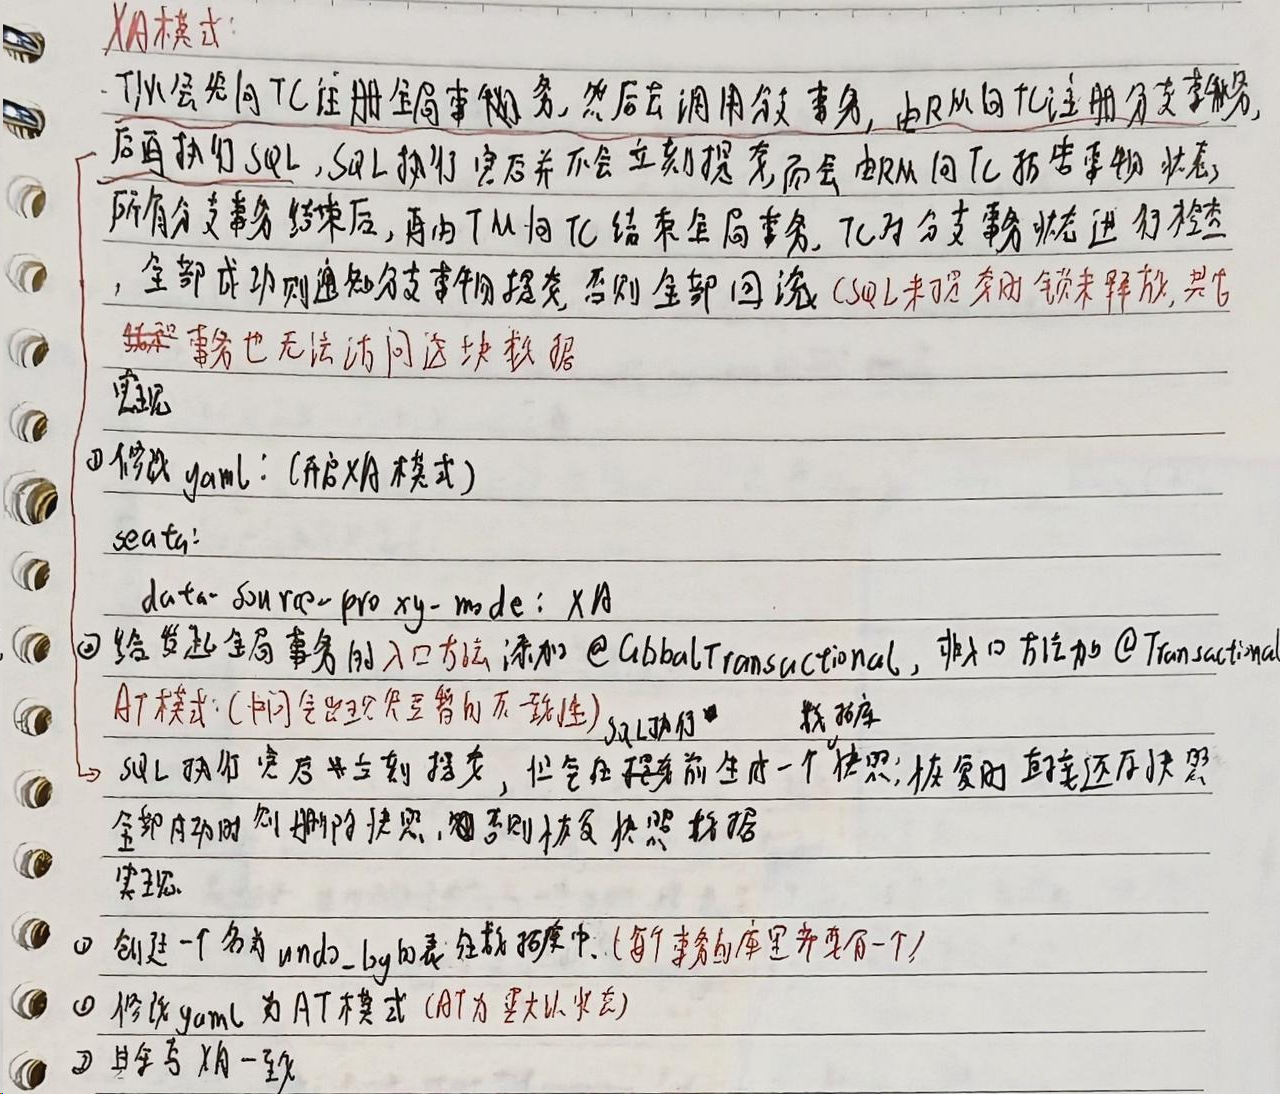 XA模式:
TM会先向TC注册全局事物务,然后去调用分支事务,由RM向TC注册分支事物务,
后再执行SQL,SQL执行完后并不会立刻提交,而会由RM向TC报告事物状态,
所有分支事务结束后,再由TM向TC结束全局事务,TC对分支事务状态进行检查
,全部成功则通知分支事物提交,否则全部回滚(SQL未提交时锁未释放,其它
事务也无法访问这块数据
实现
①修改yaml:(开启XA模式)
seata:
data-source-proxy-mode: XA
②给发起全局事务的入口方法添加@GlobalTransactional,非入口方法加@Transactional
AT模式:(中间会出现短暂的不一致性)
SQL执行 数据库
SQL执行完后并立刻提交,但会在提交前生成一个快照;恢复时直接还原快照
全部成功时则删除快照,否则恢复快照数据
实现
①创建一个名为undo_log的表在数据库中.(每个事务的库里都要有一个)
①修改yaml为AT模式(AT为默认状态)
②其余与XA一致